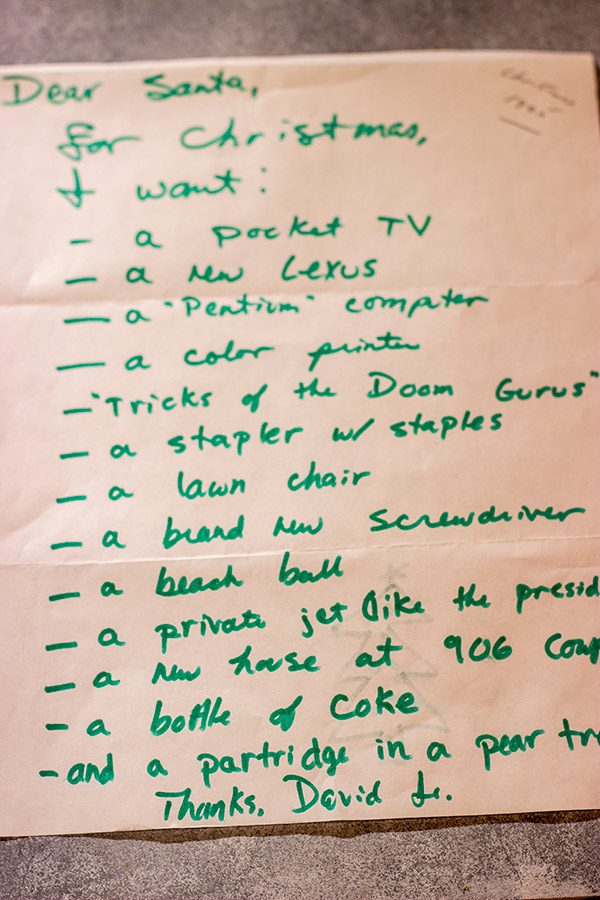 Christmas
1995
Dear Santa,
for Christmas,
I want:
- a pocket TV
- a new Lexus
- a "Pentium" computer
- a color printer
- "Tricks of the Doom Gurus"
- a stapler w/ staples
- a lawn chair
- a brand new screwdriver
- a beach ball
- a private jet (like the presid
- a new house at 906
- a bottle of coke
- and a partridge in a pear tr
Thanks. David Jr.